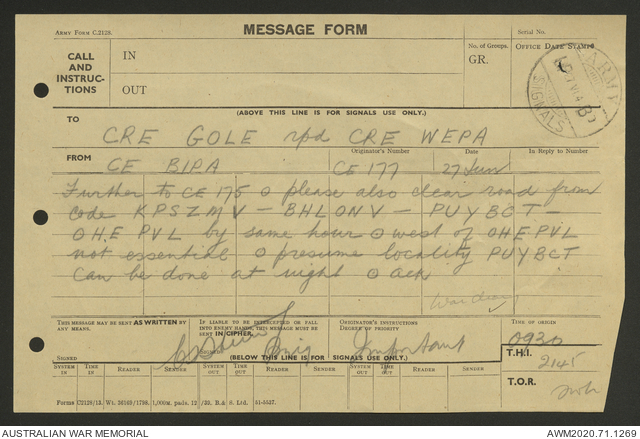 ARMY FORM C.2128.
MESSAGE FORM
Serial No.
CALL AND INSTRUC- TIONS
IN
OUT
No. of Groups.
GR.
OFFICE DATE STAMP
ARMY SIGNALS
(ABOVE THIS LINE IS FOR SIGNALS USE ONLY.)
TO
CRE GOLE rpd CRE WEPA
FROM
Originator's Number
Date
In Reply to Number
CE BIPA
CE 177
27 Jun
Further to CE 175 o please also clear road from
code KPSZMV - BHLONV - PUYBCT -
OHEPVL by same hour o west of OHEPVL
not essential o presume locality PUYBCT
can be done at night o ack
THIS MESSAGE MAY BE SENT AS WRITTEN BY ANY MEANS.
IF LIABLE TO BE INTERCEPTED OR FALL INTO ENEMY HANDS, THIS MESSAGE MUST BE SENT IN CIPHER.
ORIGINATOR'S INSTRUCTIONS DEGREE OF PRIORITY
TIME OF ORIGIN
0930
Brig
Important
SIGNED
SIGNED
(BELOW THIS LINE IS FOR SIGNALS USE ONLY)
T.H.I.
2145
SYSTEM IN
TIME IN
READER
SENDER
SYSTEM OUT
TIME OUT
READER
SENDER
SYSTEM OUT
TIME OUT
READER
SENDER
T.O.R.
Forms C2128/13. Wt. 26169/1798. 1,000m. pads. 12/39. B. & S. Ltd. 51-5537.
AUSTRALIAN WAR MEMORIAL
AWM2020.71.1269